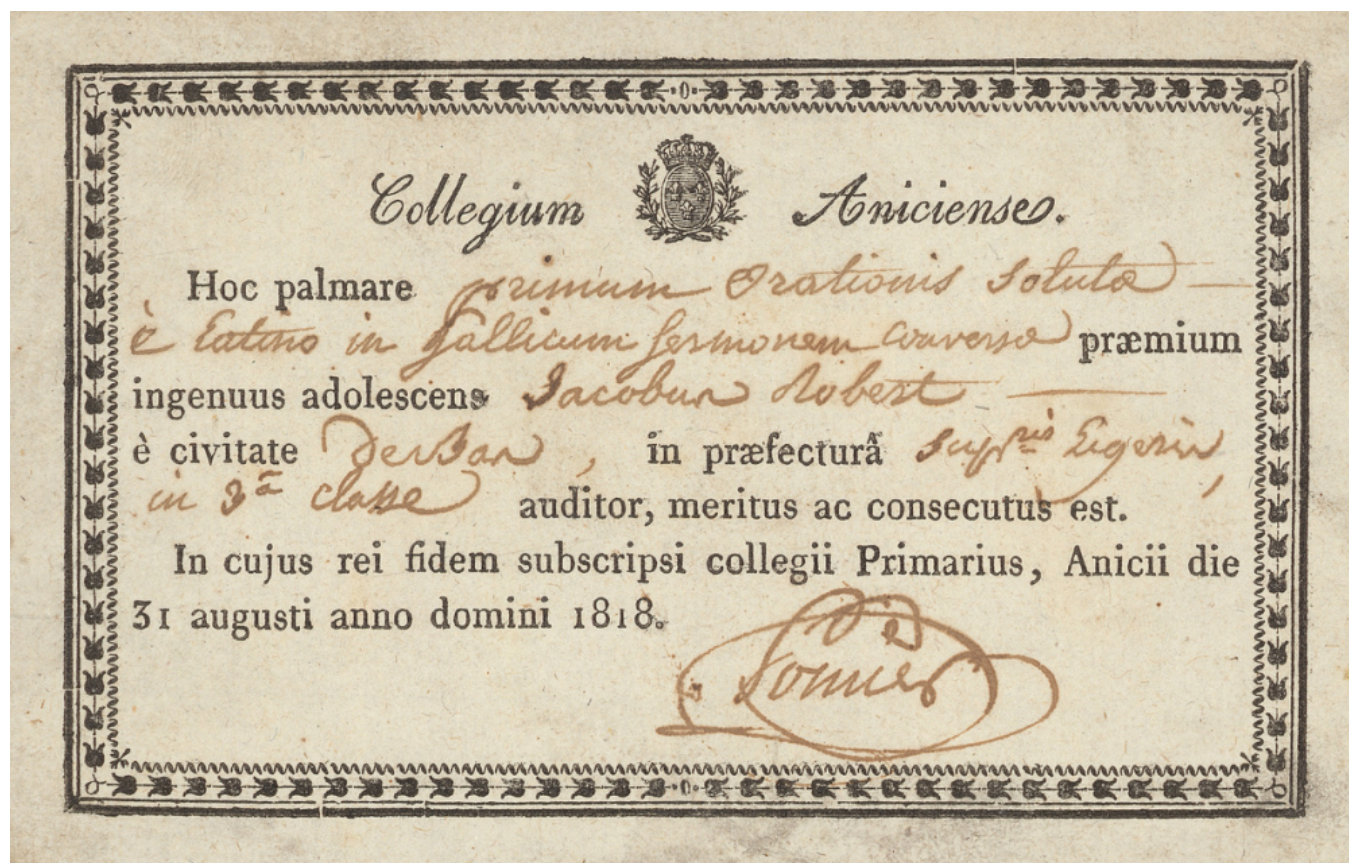 Collegium Aniciense.
Hoc palmare primum Orationis Solutæ
è Latino in gallicum sermonem conversæ præmium
ingenuus adolescens Jacobus Robert
è civitate , in præfecturâ Sup.ris Ligeris,
in 3ª classe auditor, meritus ac consecutus est.
In cujus rei fidem subscripsi collegii Primarius, Anicii die
31 augusti anno domini 1818.